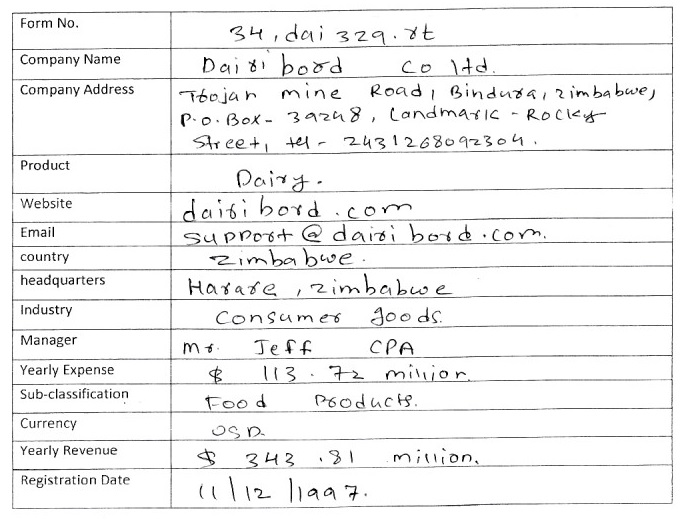 Form No. 34, dai 329.rt
Company Name Dairi bord Co ltd.
Company Address Trojan mine Road, Bindura, zimbabwe,
P.O. Box- 39248, Landmark - Rocky
Street, tel - 2431268092304.
Product Dairy.
Website dairi bord.com
Email support@dairi bord.com.
country zimbabwe.
headquarters Harare, zimbabwe
Industry Consumer goods.
Manager Mr. Jeff CPA
Yearly Expense $ 113.72 million.
Sub-classification Food Products.
Currency USD.
Yearly Revenue $ 343.81 million.
Registration Date 11/12/1997.